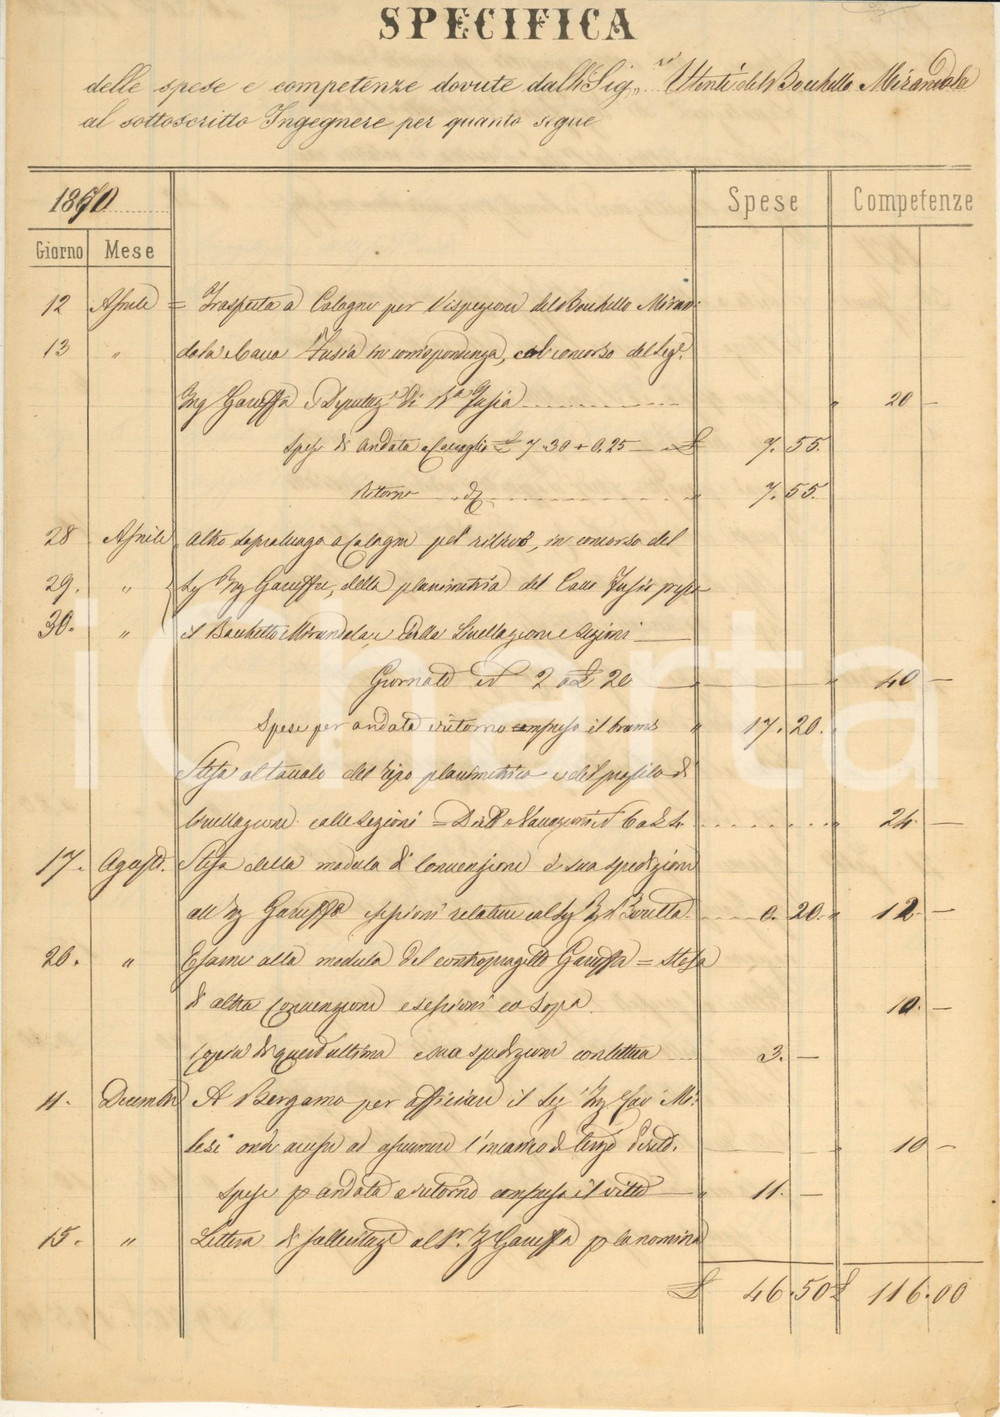 SPECIFICA
delle spese e competenze dovute dalli Sig.ri Utenti del Bocchello Mirandola
al sottoscritto Ingegnere per quanto segue
1870
Spese Competenze
Giorno Mese
12 Aprile = Trasferta a Cologne per l'ispezione del Bocchello Miran-
13 " dola e Cava Fusia in corrispondenza, col concorso del Sigr.
Ing Garuffa e Deputaz. di Fusia " 20 —
Spese di andata a Coccaglio £ 7.30 + 0.25 — £ 7.55.
Ritorno d° 7.55.
28 Aprile Altro sopraluogo a Cologne pel rilievo, in concorso del
29. " Sig Ing Garuffa, della planimetria del Cavo Fusia presso
30. " il Bocchetto Mirandola, e della Livellazione e Sezioni
Giornate N 2 a £ 20 " 40 —
Spese per andata e ritorno compreso il " 17.20.
Stesa al tavolo del tipo planimetrico e del profilo di
livellazione e delle sezioni = " 24 —
17. Agosto. Stesa della modula di Convenzione e sua spedizione
all'Ing Garuffa e sessioni relative col Sig 0.20. " 12 —
20. " Esame alla modula del controprogetto Garuffa = Stesa
di altra Convenzione e sessioni co sopa 10. —
Copia di quest'ultima e sua spedizione con lettera 3. —
11. Dicembre A Bergamo per officiare il Sig. Ing Mi-
lesi onde avesse ad assumere l'incarico di terzo 10 —
Spese p andata e ritorno compreso il vitto " 11. —
15. " Lettera di al Sr. Ing Garuffa p la nomina
£ 46.50 £ 116.00
iCharta